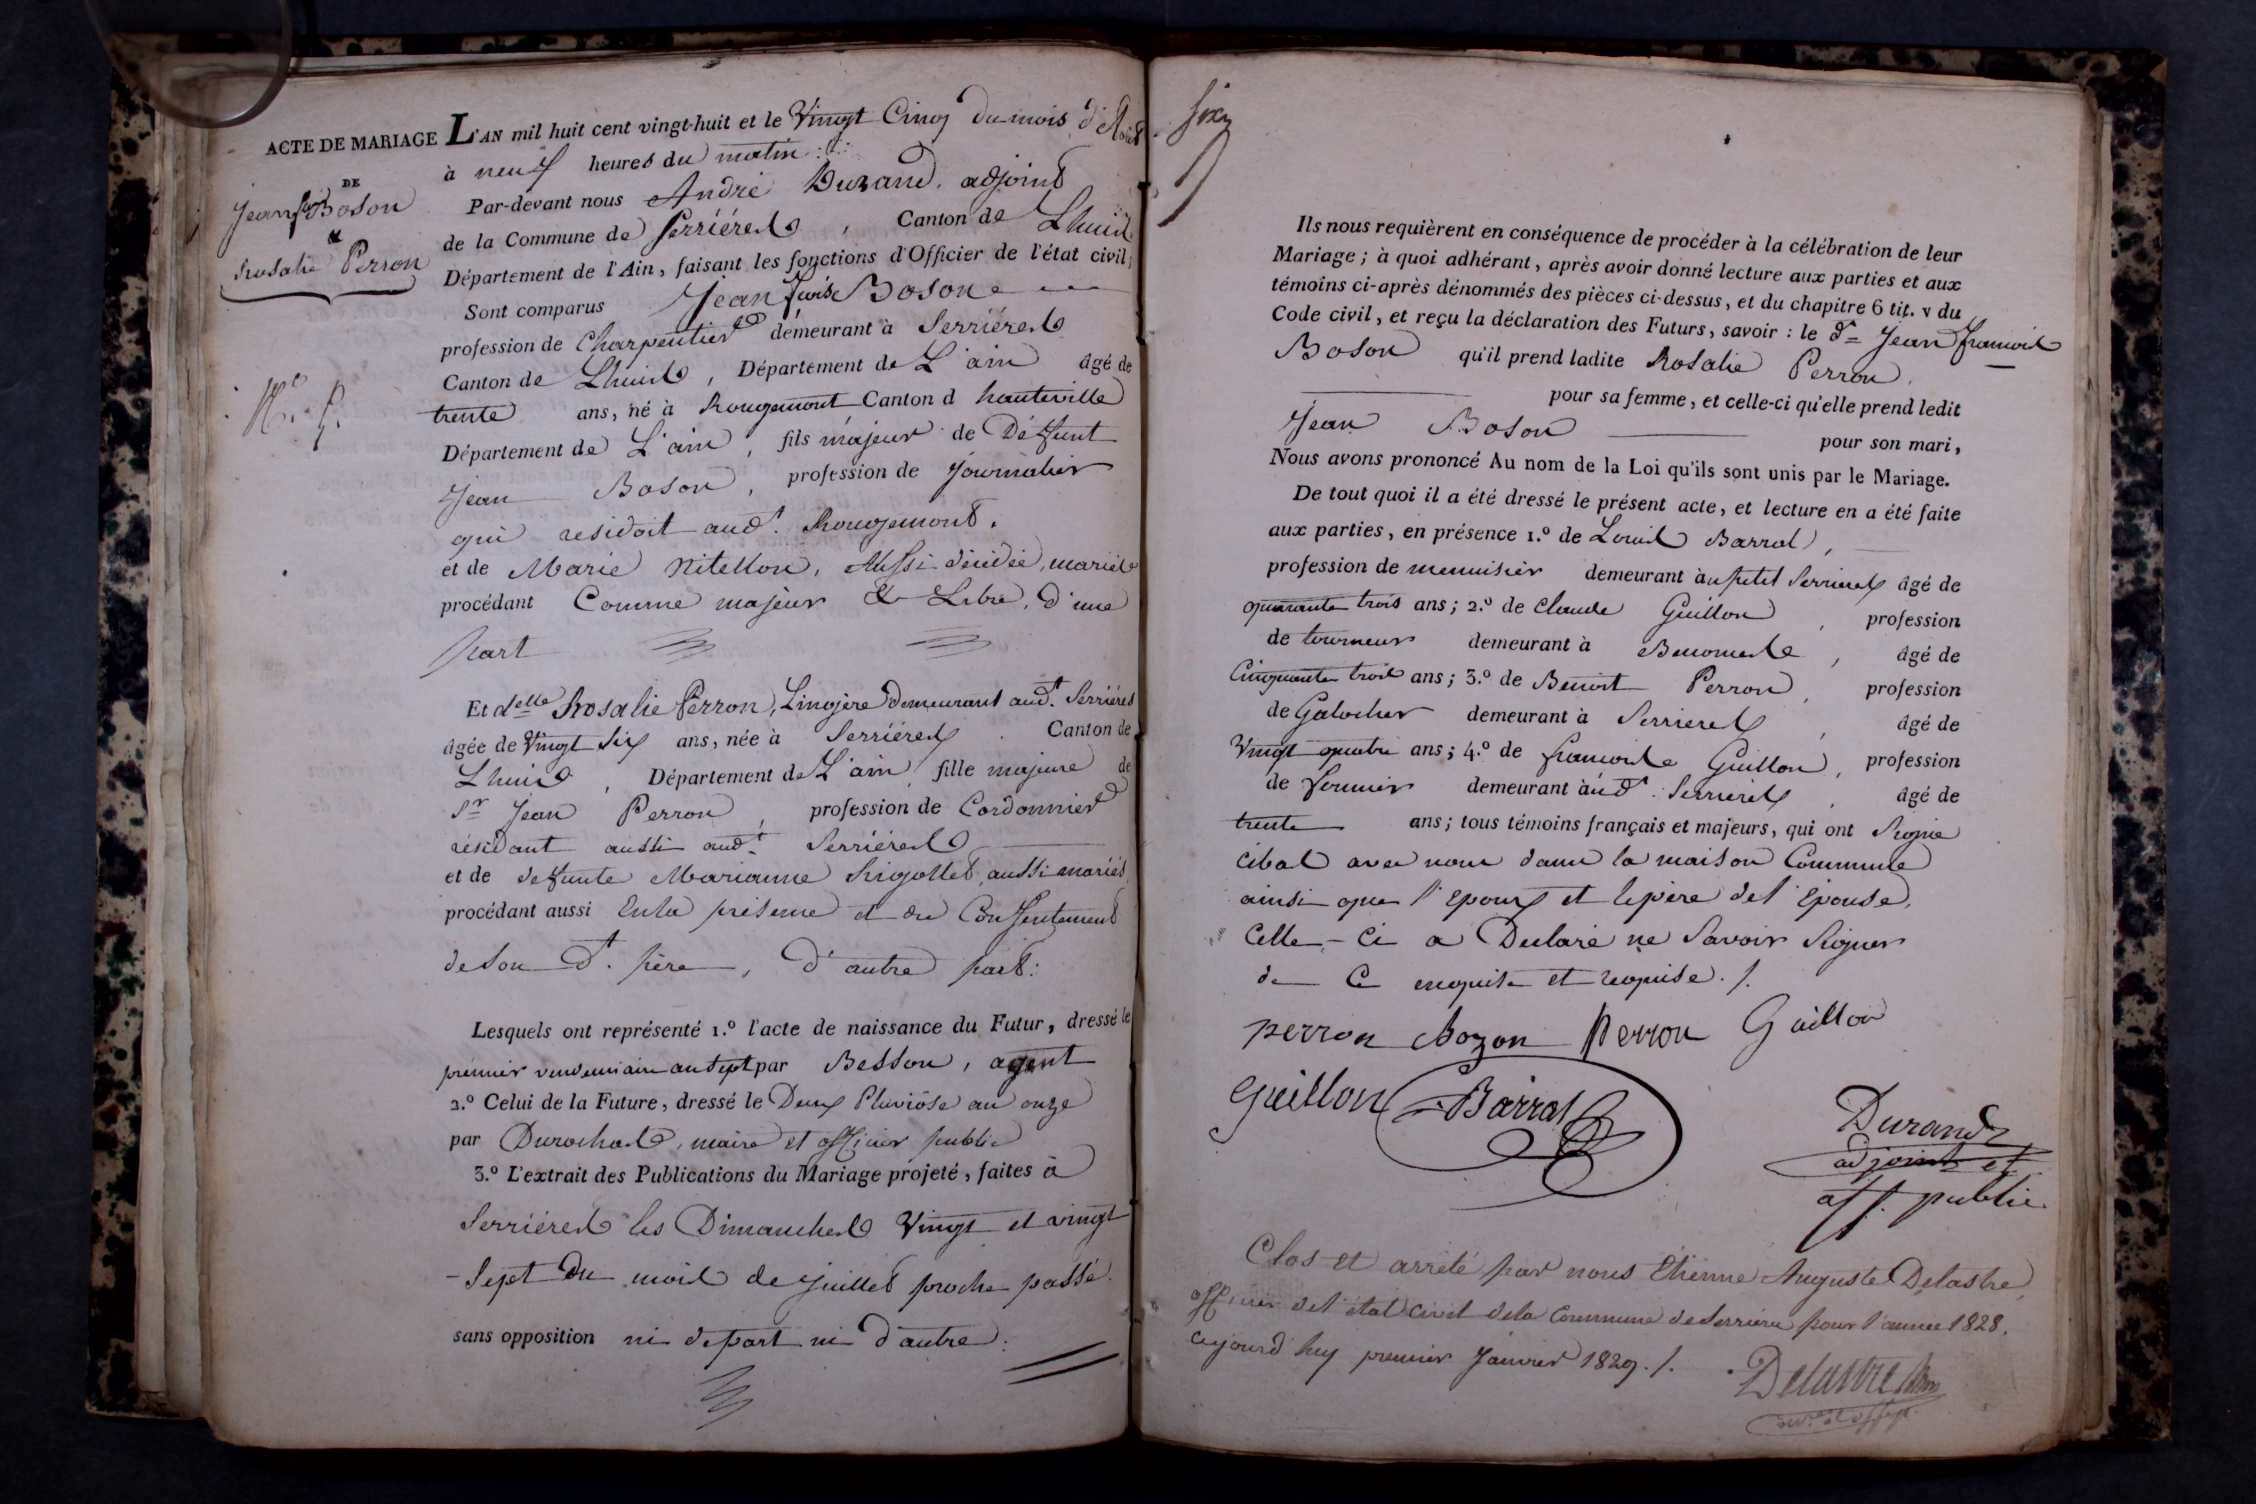 ACTE DE MARIAGE
DE
Jean fçois Boson
&
Rosalie Perron
L'AN mil huit cent vingt-huit et le Vingt Cinq du mois d'Aout
à neuf heures du matin
Par-devant nous André Durand, adjoint
de la Commune de Serriéres, Canton de Lhuis
Département de l'Ain, faisant les fonctions d'Officier de l'état civil;
Sont comparus Jean fçois Boson
profession de Charpentier demeurant à Serriéres
Canton de Lhuis, Département de L'ain âgé de
trente ans, né à Rougemont Canton d hauteville
Département de L'ain, fils majeur de Défunt
Jean Boson, profession de Journalier
qui residoit aud.t Rougemont.
et de Marie Nitellon, Aussi décédée, mariés
procédant Comme majeur & Libre, d'une
part
Et d.elle Rosalie Perron, Lingère demeurant aud.t Serriéres
âgée de Vingt Six ans, née à Serriéres Canton de
Lhuis, Département de L'ain fille majeure de
S.r Jean Perron, profession de Cordonnier
résidant aussi aud.t Serriéres
et de defunte Marianne Rigottet, aussi mariés
procédant aussi En la présence et du Consentement
de son d.t père, d'autre part:
Lesquels ont représenté 1.º l'acte de naissance du Futur, dressé le
premier vendemiaire an sept par Besson, agent
2.º Celui de la Future, dressé le Deux Pluviôse an onze
par Durochat, maire et officier public
3.º L'extrait des Publications du Mariage projeté, faites à
Serriéres les Dimanches Vingt et vingt
- Sept du mois de Juillet proche passé
sans opposition ni de part ni d'autre:
Ils nous requièrent en conséquence de procéder à la célébration de leur
Mariage; à quoi adhérant, après avoir donné lecture aux parties et aux
témoins ci-après dénommés des pièces ci-dessus, et du chapitre 6 tit. v du
Code civil, et reçu la déclaration des Futurs, savoir: le d. Jean francois
Boson qu'il prend ladite Rosalie Perron,
pour sa femme, et celle-ci qu'elle prend ledit
Jean Boson pour son mari,
Nous avons prononcé Au nom de la Loi qu'ils sont unis par le Mariage.
De tout quoi il a été dressé le présent acte, et lecture en a été faite
aux parties, en présence 1.º de Louis Barral,
profession de menuisier demeurant à au petit Serrieres âgé de
quarante trois ans; 2.º de Claude Guillon, profession
de tourneur demeurant à Benonces, âgé de
Cinquante trois ans; 3.º de Benoit Perron, profession
de Galochier demeurant à Serrieres, âgé de
Vingt quatre ans; 4.º de francois Guillon, profession
de fermier demeurant à aud.t Serrieres, âgé de
trente ans; tous témoins français et majeurs, qui ont Signé
cibas avec nous dans la maison Commune
ainsi que l'epoux et le père de l'Epouse,
Celle-Ci a Declaré ne Savoir Signer
de Ce enquise et requise ./.
perron Bozon Perron Guillon
Guillon Barral
Durand
adjoint et
off. public
Clos et arrêté par nous Etienne Auguste Delastre,
officier de l'état civil de la Commune de Serrieres pour l'année 1828.
cejourd'huy premier Janvier 1829 ./.
Delastre